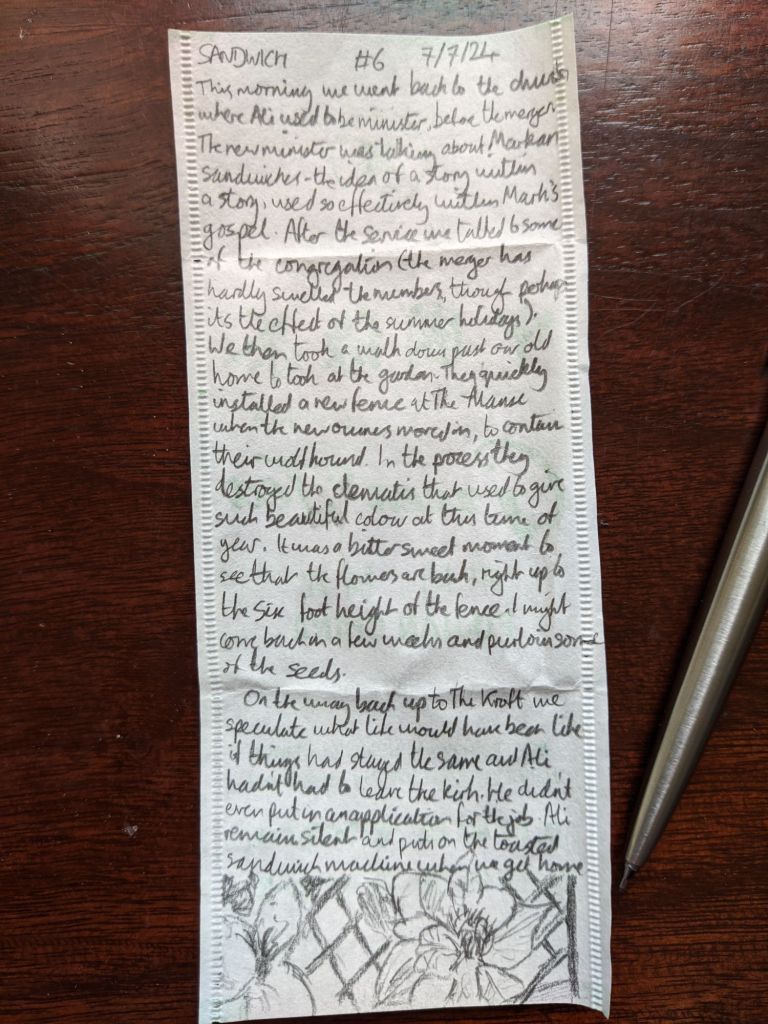 SANDWICH #6 7/7/24
This morning we went back to the church
where Ali used to be minister, before the merger.
The new minister was talking about Markan
sandwiches - the idea of a story within
a story, used so effectively within Mark's
gospel. After the service we talked to some
of the congregation (the merger has
hardly swelled the members, though perhaps
its the effect of the summer holidays).
We then took a walk down past our old
home to look at the garden. They quickly
installed a new fence at The Manse
when the new owners moved in, to contain
their wolfhound. In the process they
destroyed the clematis that used to give
such beautiful colour at this time of
year. It was a bitter sweet moment to
see that the flowers are back, right up to
the six foot height of the fence. I might
come back in a few weeks and purloin some
of the seeds.
On the way back up to The Kraft we
speculate what life would have been like
if things had stayed the same and Ali
hadn't had to leave the kirk. He didn't
even put in an application for the job. Ali
remain silent and puts on the toasted
sandwich machine when we get home